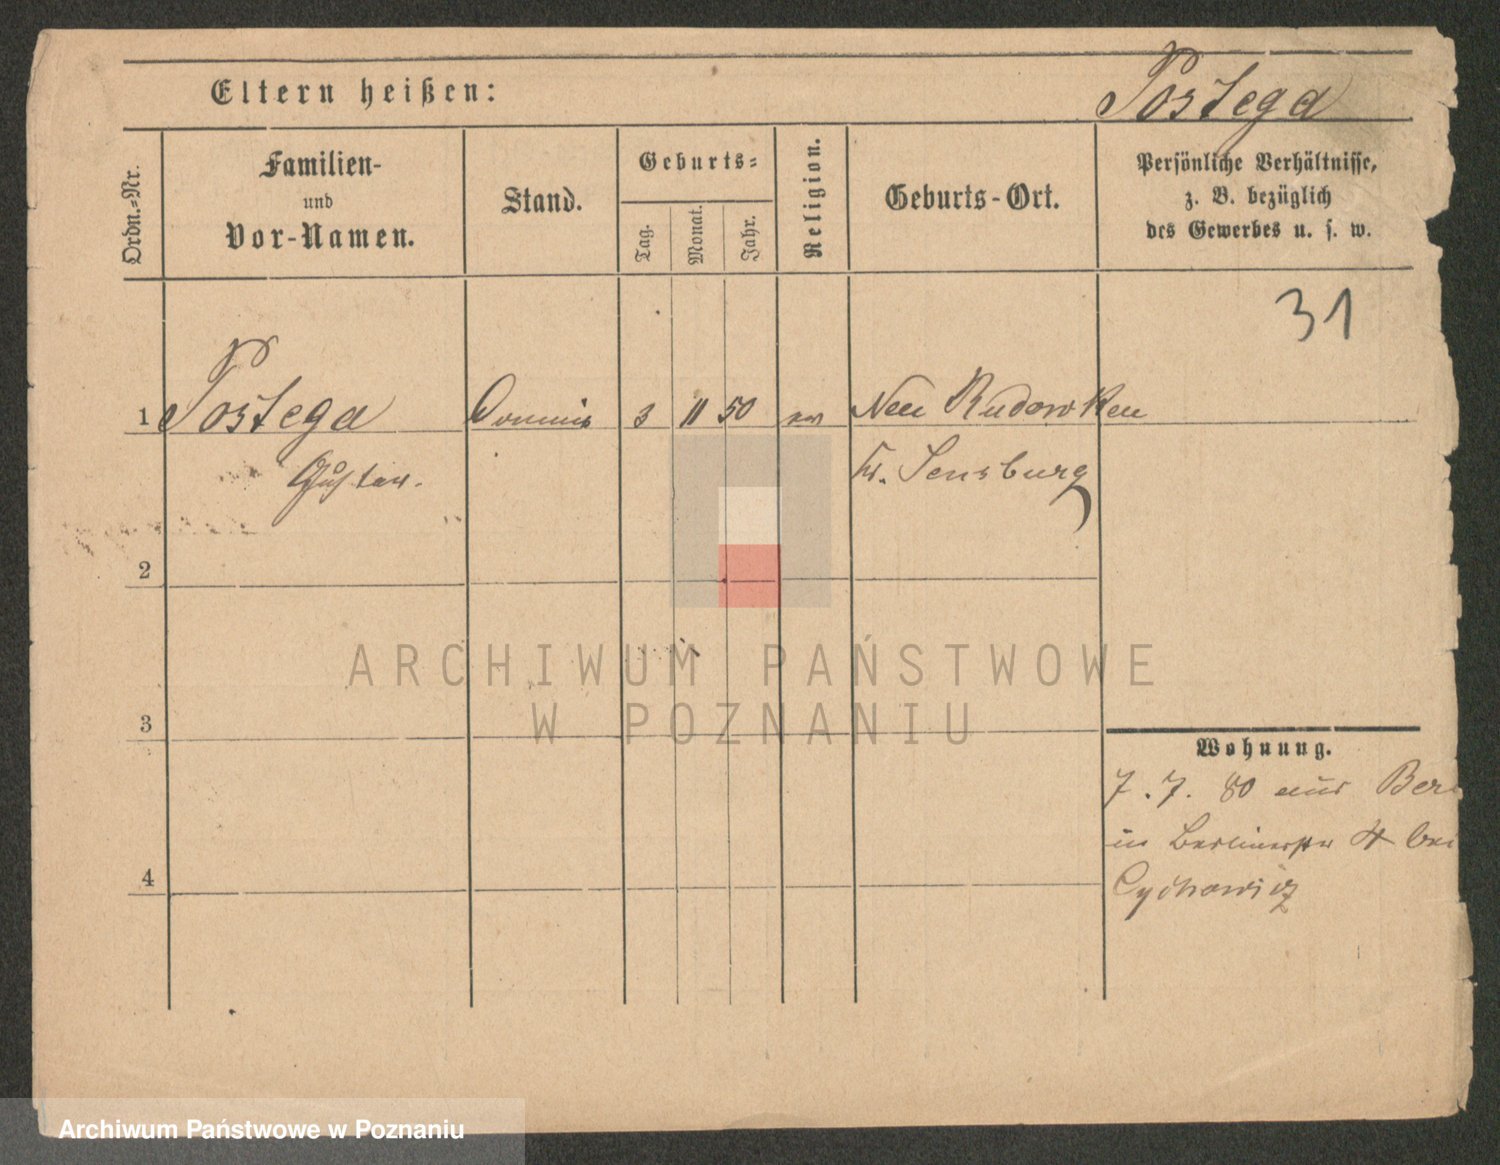 Postega
Eltern heißen:
Ordn.-Nr.
Familien-
und
Vor-Namen.
Stand.
Geburts-
Tag.
Monat.
Jahr.
Religion.
Geburts-Ort.
Persönliche Verhältnisse,
z. B. bezüglich
des Gewerbes u. s. w.
31
1 Postega Commis 3 11 50 ev Neu Rudowken
Gustav. Kr. Sensburg
2
3
4
Wohnung.
7. 7. 80 aus Ber
in Berlinerstr 4 bei
Cychowicz
ARCHIWUM PAŃSTWOWE
W POZNANIU
Archiwum Państwowe w Poznaniu